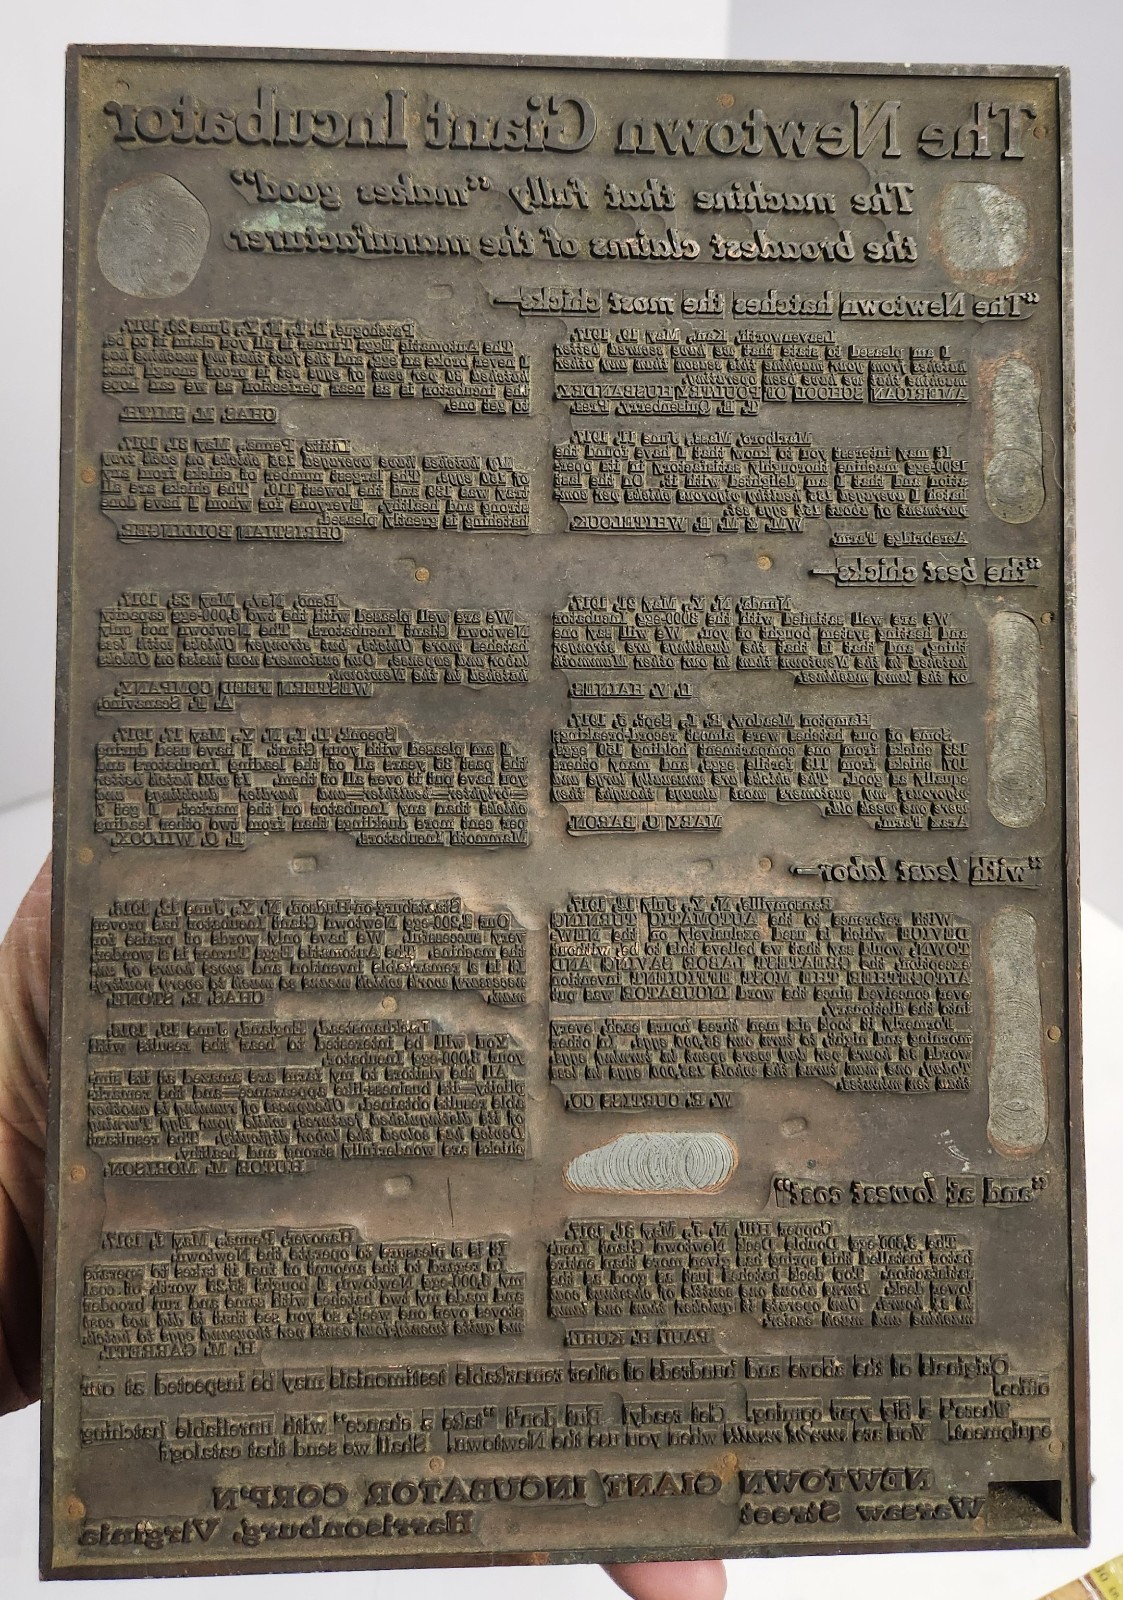 The Newtown Giant Incubator
The machine that fully "makes good"
the broadest claims of the manufacturer
"The Newtown hatches the most chicks—
Leavenworth, Kan., May 19, 1917.
I am pleased to state that we have secured better
hatches from your machine this season than any other
machine that we have been operating.
AMERICAN SCHOOL OF POULTRY HUSBANDRY,
T. E. Quisenberry, Pres.
Marlboro, Mass., June 11, 1917.
It may interest you to know that I have found the
1200-egg machine thoroughly satisfactory in its oper-
ation and that I am delighted with it. On the last
hatch I averaged 135 healthy vigorous chicks per com-
partment of about 157 eggs set.
WM. & M. B. WHITELOCK,
Acrebridge Farm.
Patchogue, L. I., N. Y., June 25, 1917.
The Automatic Egg Turner is all you claim it to be.
I never broke an egg and the fact that my machine has
hatched 85 per cent of eggs set is proof enough that
the incubator is as near perfection as we can hope
to get one.
CHAS. M. SMITH.
Lititz, Penna., May 31, 1917.
My hatches have averaged 125 chicks on each tray
of 150 eggs. The largest number of chicks from any
tray was 139 and the lowest 110. The chicks are all
strong and healthy. Everyone for whom I have done
hatching is greatly pleased.
CHRISTIAN BOLLINGER.
"the best chicks—
Nunda, N. Y., May 21, 1917.
We are well satisfied with the 3000-egg Incubator
and heating system bought of you. We will say one
thing, and that is that the ducklings are stronger
hatched in the Newtown than in our other Mammoth
or the lamp machines.
D. V. HAINES.
Hampton Meadow, R. I., Sept. 5, 1917.
Some of our hatches were almost record-breaking;
138 chicks from one compartment holding 150 eggs;
107 chicks from 113 fertile eggs, and many others
equally as good. The chicks are unusually large and
vigorous; my customers most always thought they
were one week old.
Area Farm.
MARY C. BARON.
Reno, Nev., May 23, 1917.
We are well pleased with the two 3,000-egg capacity
Newtown Giant Incubators. The Newtown not only
hatches more Chicks, but stronger Chicks with less
labor and expense. Our customers now insist on Chicks
hatched in the Newtown.
WESTERN FEED COMPANY,
A. T. Scanavino.
Speonk, L. I., N. Y., May 17, 1917.
I am pleased with your Giant. I have used during
the past 35 years all of the leading Incubators and
you have put it over all of them. It will hatch better
—brighter—healthier—and hardier ducklings and
chicks than any Incubator on the market. I get 7
per cent more ducklings than from two other leading
Mammoth Incubators.
E. O. WILCOX.
"with least labor—
Ransomville, N. Y., July 12, 1917.
With reference to the AUTOMATIC TURNING
DEVICE which is used exclusively on the NEW-
TOWN, would say that we believe this to be, without
exception, the GREATEST LABOR SAVING AND
ALTOGETHER THE MOST EFFICIENT invention
ever conceived since the word INCUBATOR was put
into the dictionary.
Formerly it took six men three hours each, every
morning and night, to turn our 85,000 eggs. In other
words 36 hours per day were spent in turning eggs.
Today, one man turns the whole 125,000 eggs in less
than ten minutes.
W. R. CURTISS CO.
Staatsburg-on-Hudson, N. Y., June 12, 1916.
Our 2,200-egg Newtown Giant Incubator has proven
very successful. We have only words of praise for
the machine. The Automatic Egg Turner is a wonder.
It is a remarkable invention and saves hours of un-
necessary work which means so much to every poultry-
man.
CHAS. E. STONE.
England, June 19, 1916.
You will be interested to hear the results with
your 3,000-egg Incubator.
All the visitors to my farm are amazed at its sim-
plicity—its business-like appearance—and the remark-
able results obtained. Cheapness of running is another
of its distinguished features, while your Egg Turning
Device has solved the labor difficulty. The resultant
chicks are wonderfully strong and healthy.
RUTH M. MORISON.
"and at lowest cost"
Copper Hill, N. J., May 31, 1917.
The 3,600-egg Double Deck Newtown Giant Incu-
bator installed this spring has given more than entire
satisfaction. Top deck hatches just as good as the
lower deck. Burns about one scuttle of chestnut coal
in 24 hours. Can operate it quicker than one lamp
machine and much easier.
PAUL H. KUHL.
Hanover, Penna., May 1, 1917.
It is a pleasure to operate the Newtown.
In regard to the amount of fuel it takes to operate
my 6,000-egg Newtown, I bought $5.25 worth of coal
and made my two hatches with same and run brooder
stoves over one week, so you see that it did not cost
me quite twenty-four cents per thousand eggs to hatch.
H. M. GARRETT.
Originals of the above and hundreds of other remarkable testimonials may be inspected at our
office.
There's a big year coming. Get ready! But don't "take a chance" with unreliable hatching
equipment. You are sure of results when you use the Newtown. Shall we send that catalog?
NEWTOWN GIANT INCUBATOR CORP'N
Warsaw Street Harrisonburg, Virginia